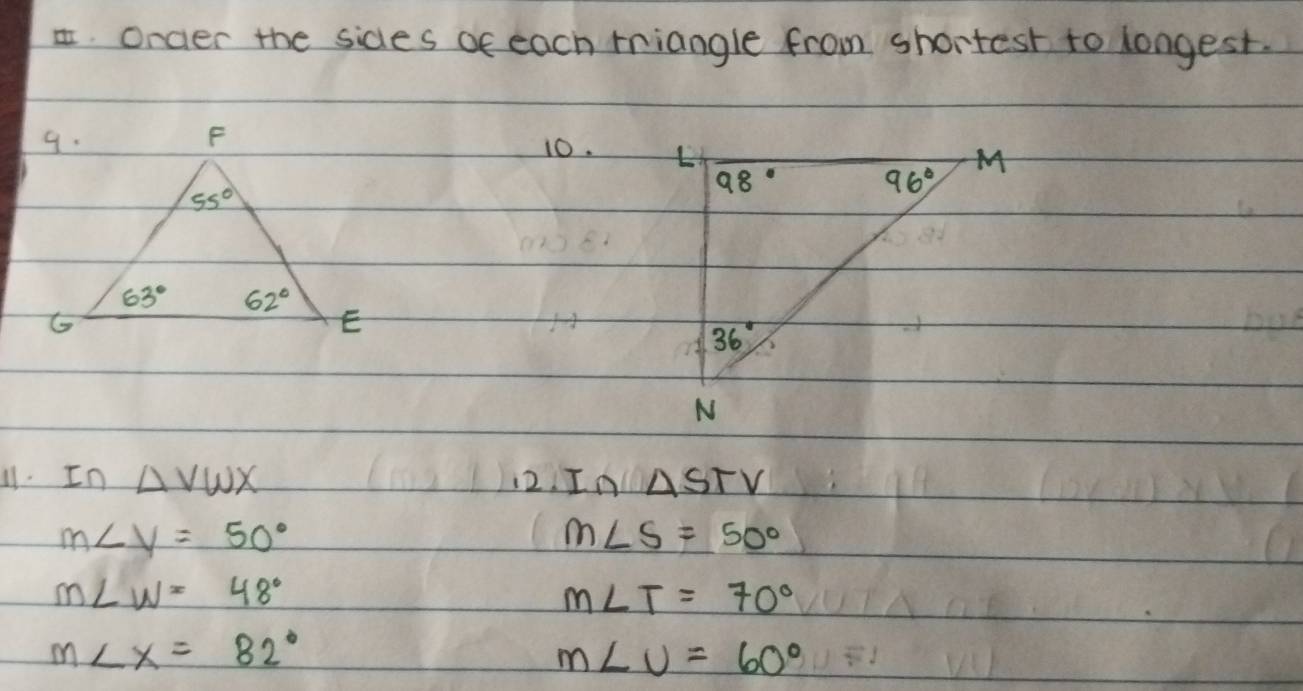 III. Order the sides of each triangle from shortest to longest.
9.
F
55°
63°
62°
G
E
10.
L
M
98°
96°
36°
N
11. In ΔVWX
m∠V = 50°
m∠W = 48°
m∠X = 82°
12. In ΔSTV
m∠S = 50°
m∠T = 70°
m∠U = 60°